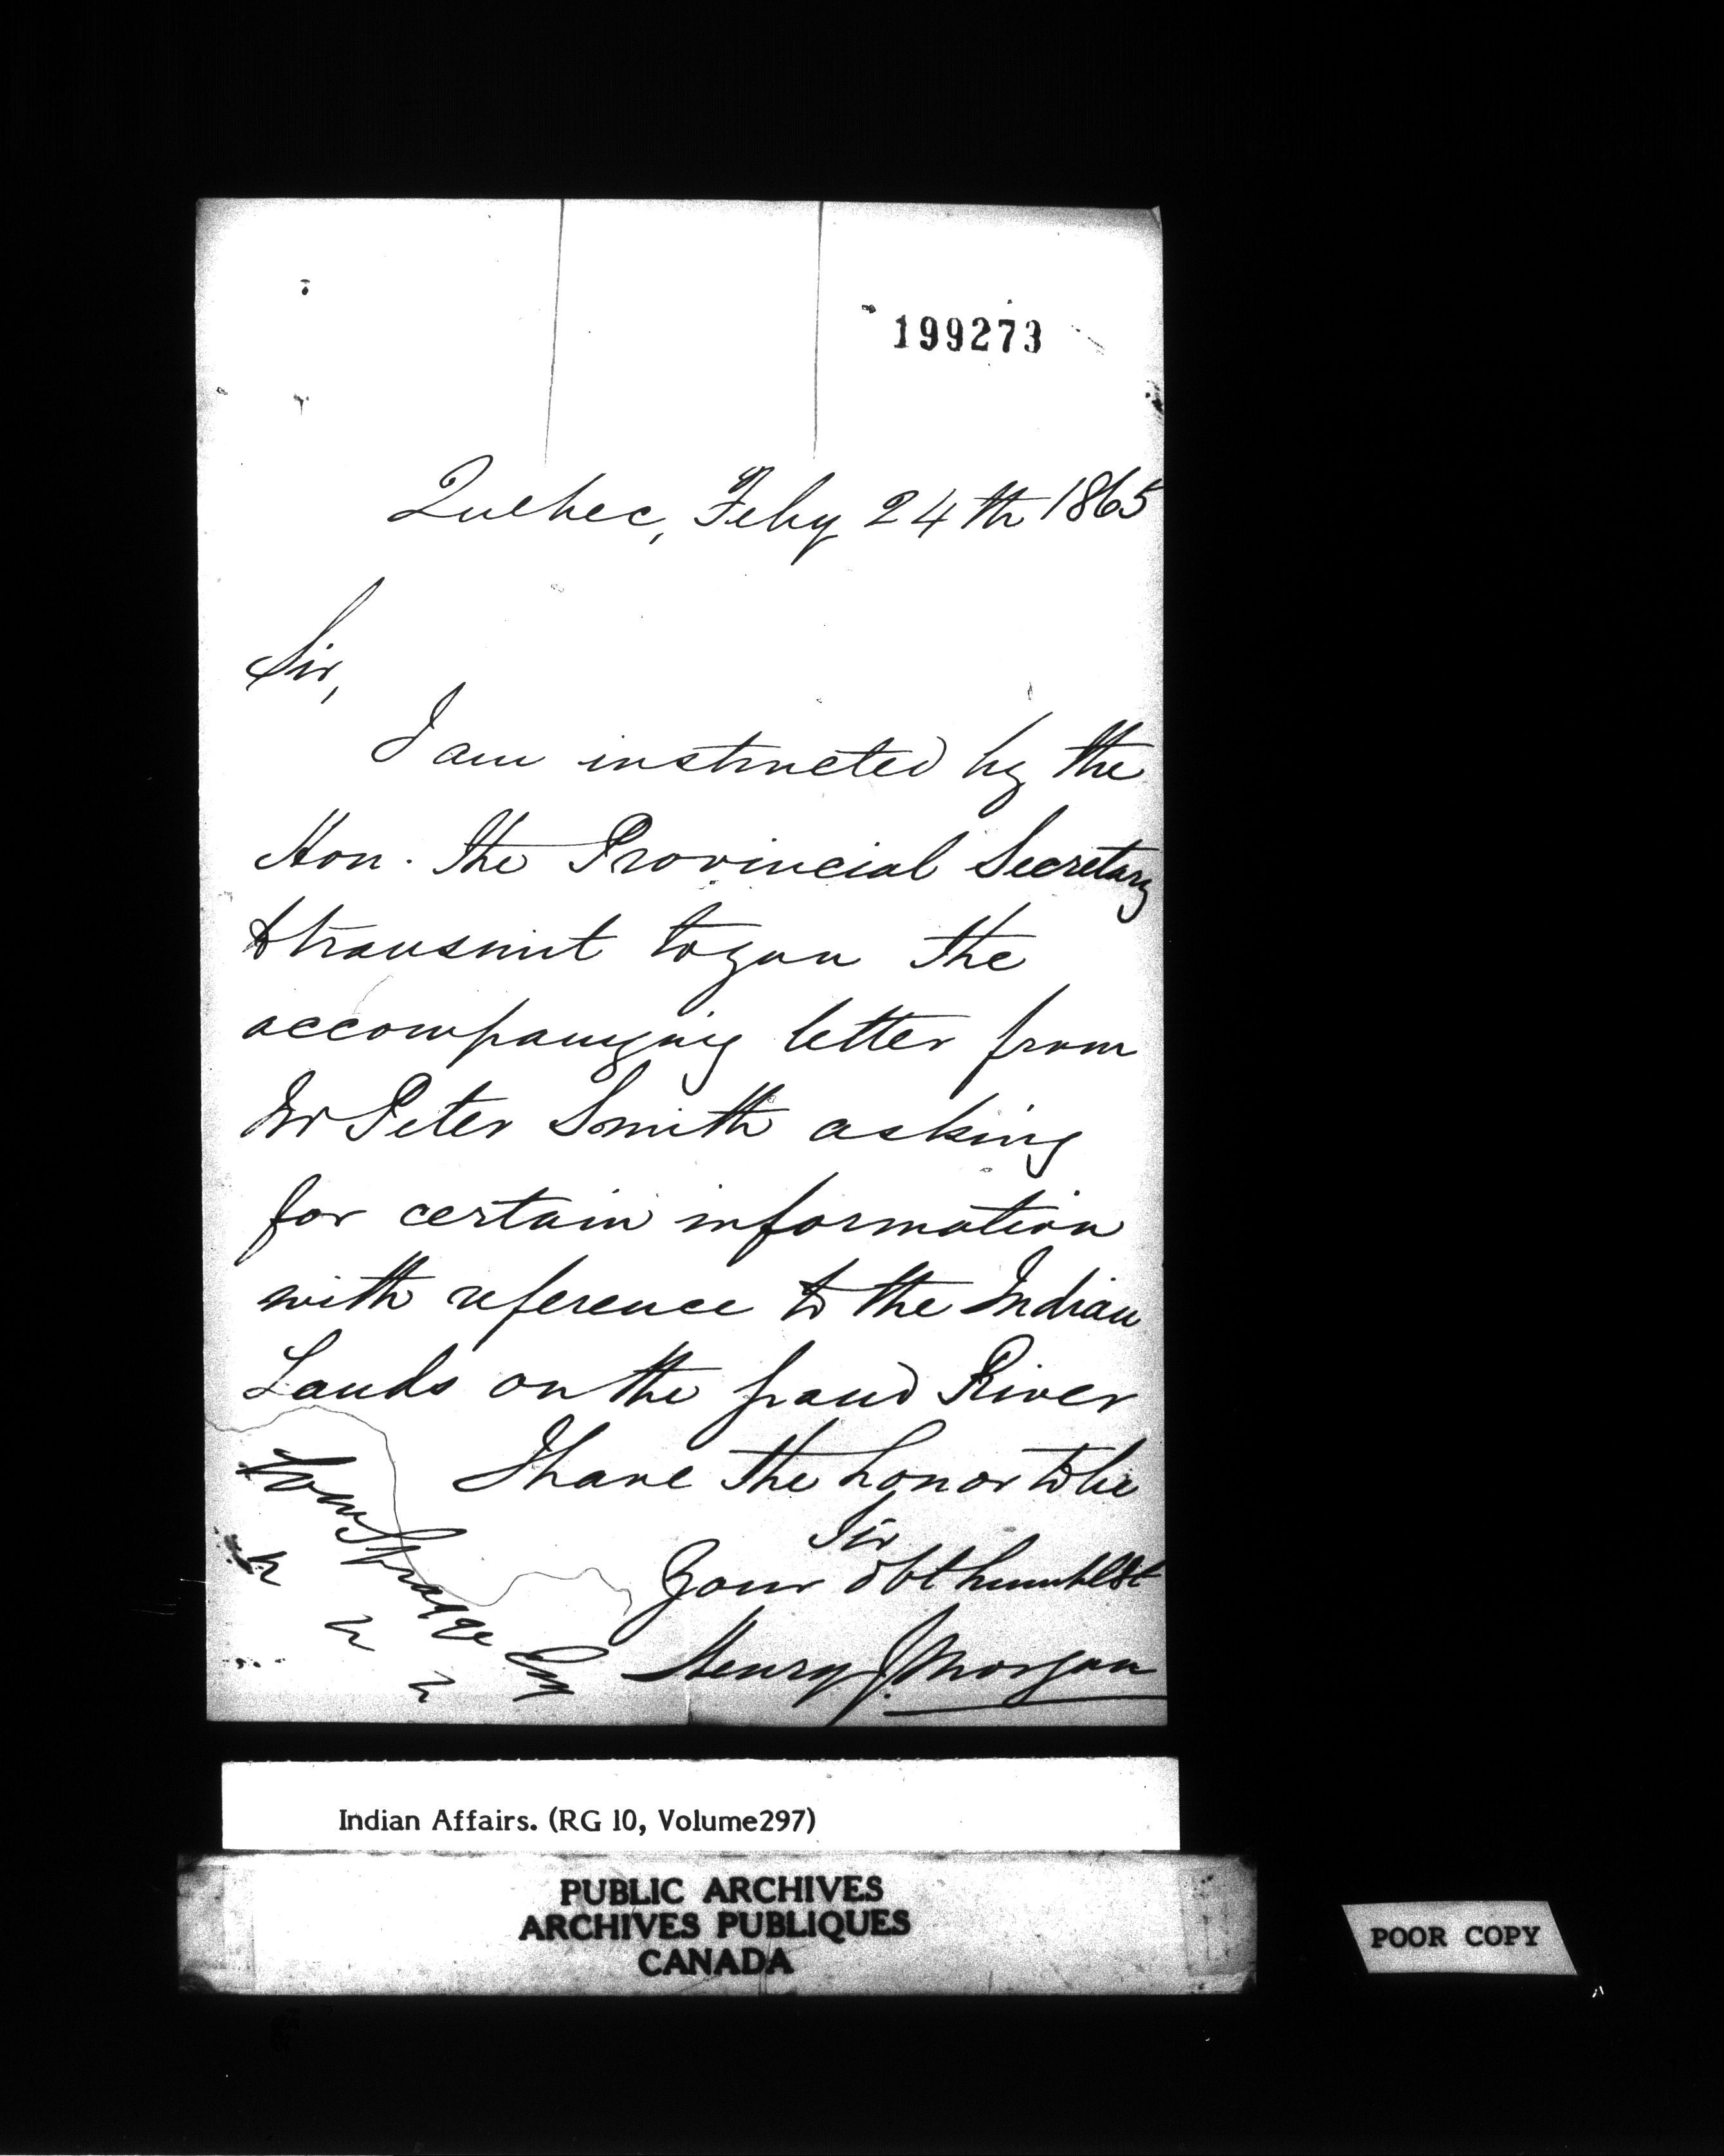 199273
Quebec, Feby 24th 1865
Sir,
I am instructed by the
Hon. the Provincial Secretary
to transmit to you the
accompanying letter from
Mr Peter Smith asking
for certain information
with reference to the Indian
Lands on the Grand River
I have the honor to be
Sir
Your obt humble St
Henry J. Morgan
Wm Spragge Esq
Indian Affairs. (RG 10, Volume297)
PUBLIC ARCHIVES
ARCHIVES PUBLIQUES
CANADA
POOR COPY